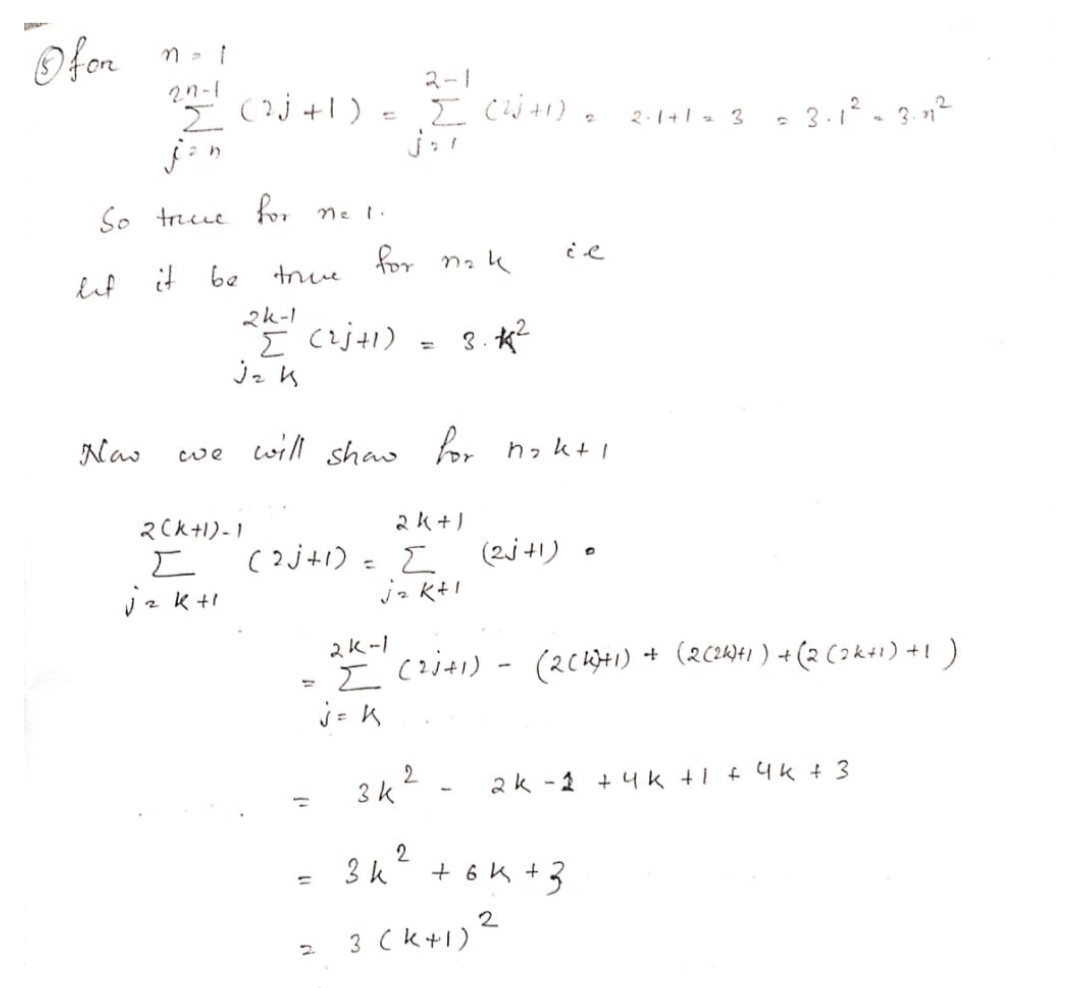 ⑤ for n = 1
2n-1 Σ j=n (2j+1) = 2-1 Σ j=1 (2j+1) = 2·1+1 = 3 = 3·1² = 3·n²
So true for n=1.
let it be true for n=k ie
2k-1 Σ j=k (2j+1) = 3·k²
Now we will show for n=k+1
2(k+1)-1 Σ j=k+1 (2j+1) = 2k+1 Σ j=k+1 (2j+1)
= 2k-1 Σ j=k (2j+1) - (2(k)+1) + (2(2k)+1) + (2(2k+1)+1)
= 3k² - 2k - 1 + 4k + 1 + 4k + 3
= 3k² + 6k + 3
= 3(k+1)²